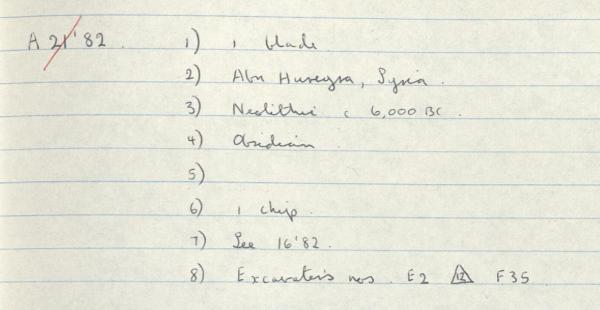 A 21'82 1) 1 blade
2) Abu Hureyra, Syria.
3) Neolithic c 6,000 BC.
4) Obsidian
5)
6) 1 chip.
7) See 16'82.
8) Excavator's nos. E2 12 F35